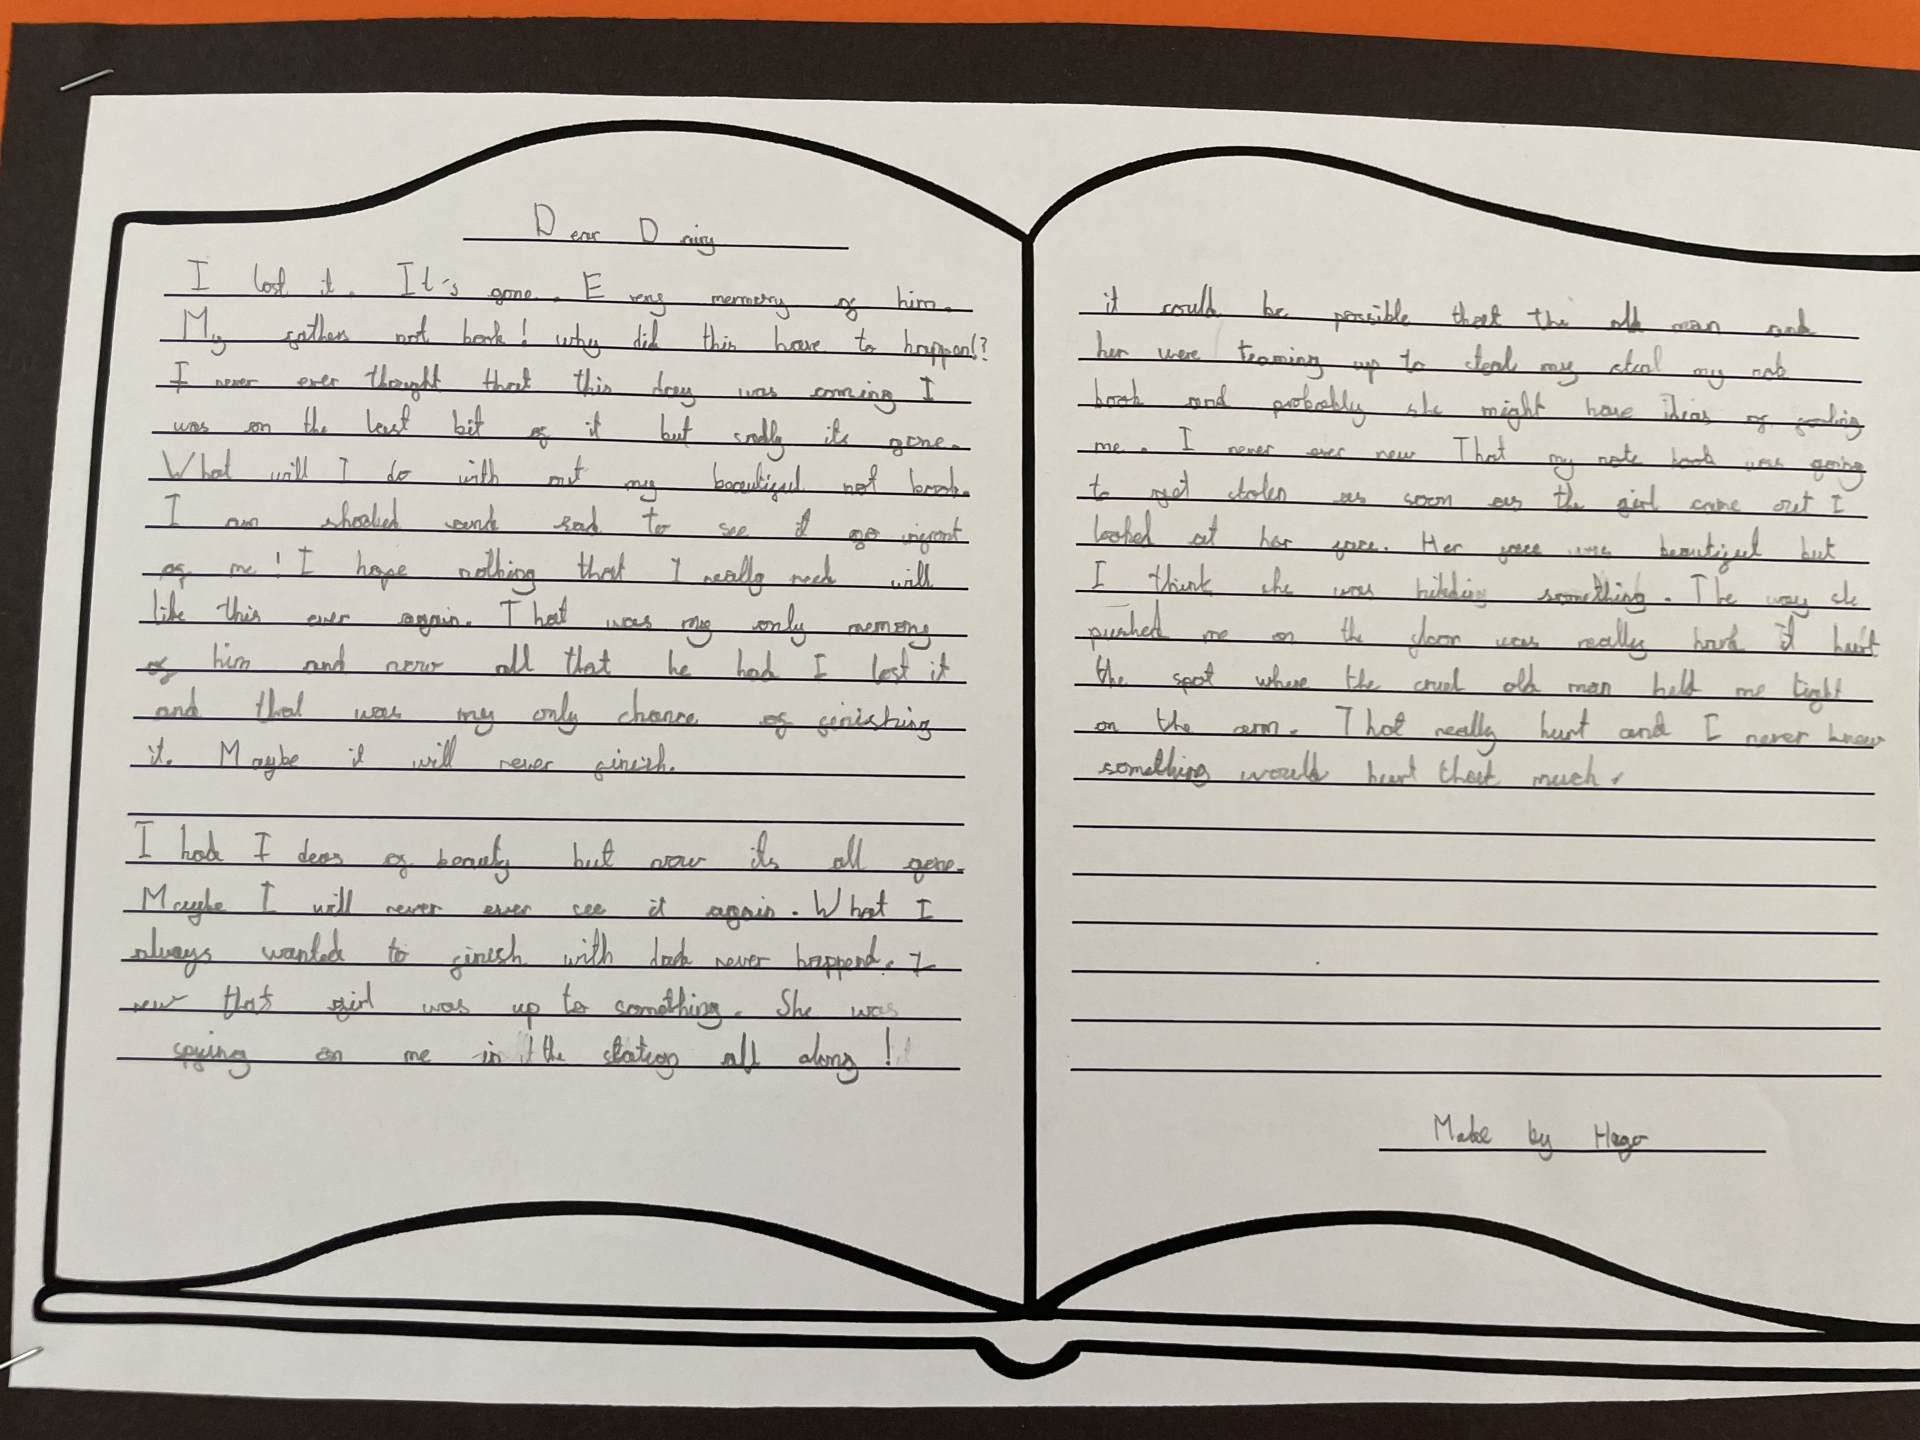 Dear Dairy
I lost it. It's gone. Every memory of him.
My fathers not book! why did this have to happen!?
I never ever thought that this day was coming I
was on the last bit of it but sadly its gone.
What will I do with out my beautiful not book.
I am shocked and sad to see it go infront
of me! I hope nothing that I really need will
like this ever again. That was my only memory
of him and now all that he had I lost it
and that was my only chance of finishing
it. Maybe it will never finish.
I had I deas of beauty but now its all gone.
Maybe I will never ever see it again. What I
always wanted to finish with dad never happend. I
new that girl was up to something. She was
spying on me in the station all along!
it could be possible that the old man and
her were teaming up to steal my steal my not
book and probably she might have ideas of
me. I never ever new That my note book was going
to get stolen as soon as the girl came out I
looked at her face. Her face was beautiful but
I think she was hiding something. The way she
pushed me on the floor was really hard it hurt
the spot where the cruel old man held me tight
on the arm. That really hurt and I never knew
something would hurt that much.
Make by Hugo